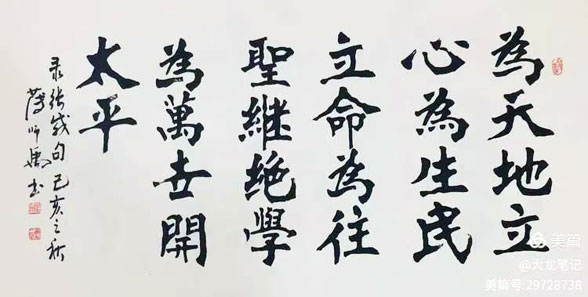 為天地立
心為生民
立命為往
聖継绝學
為萬世開
太平
录张载句己亥之秋
美篇
@天龙笔记
美篇号:29728738